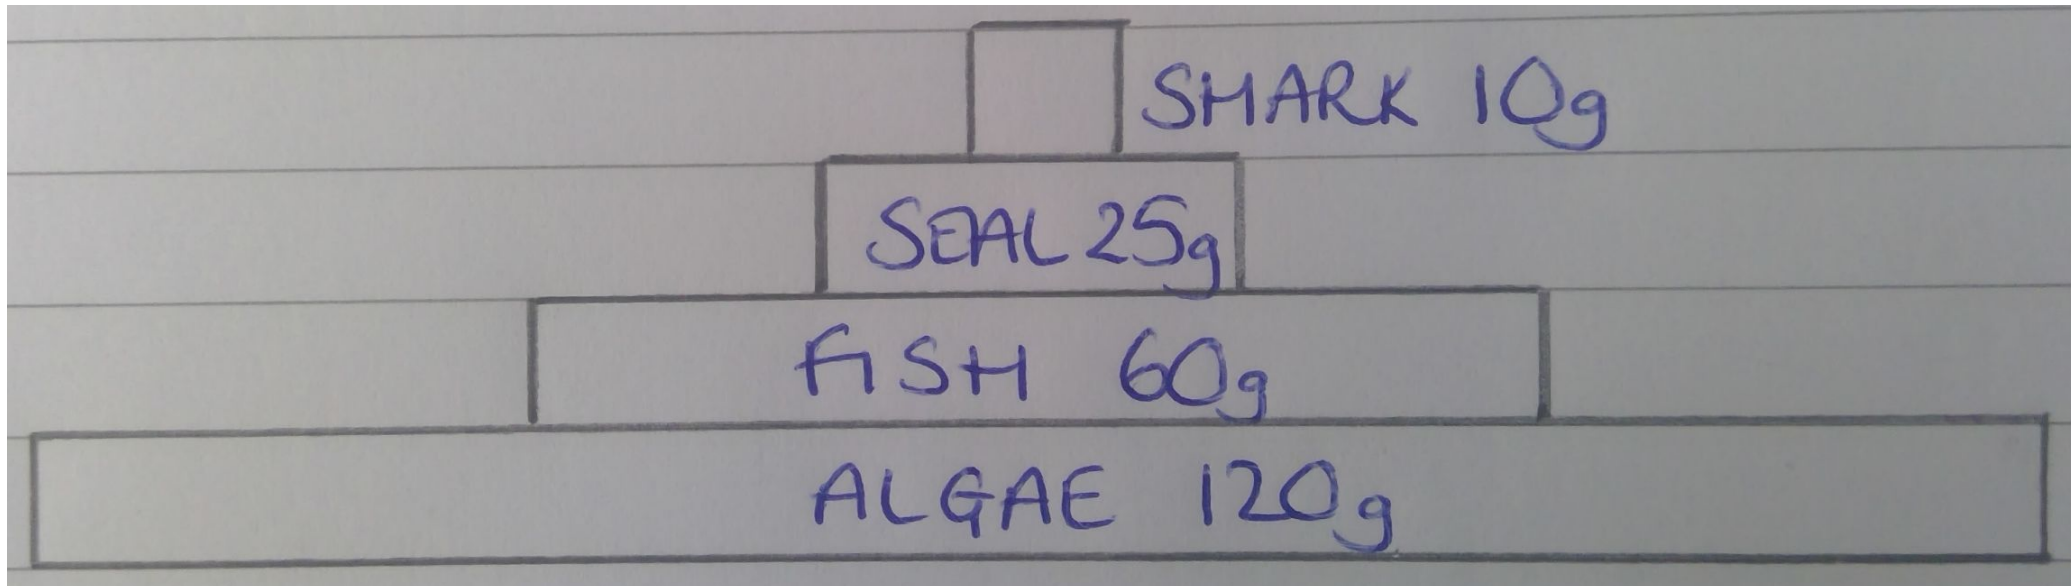 SHARK 10g
SEAL 25g
FISH 60g
ALGAE 120g